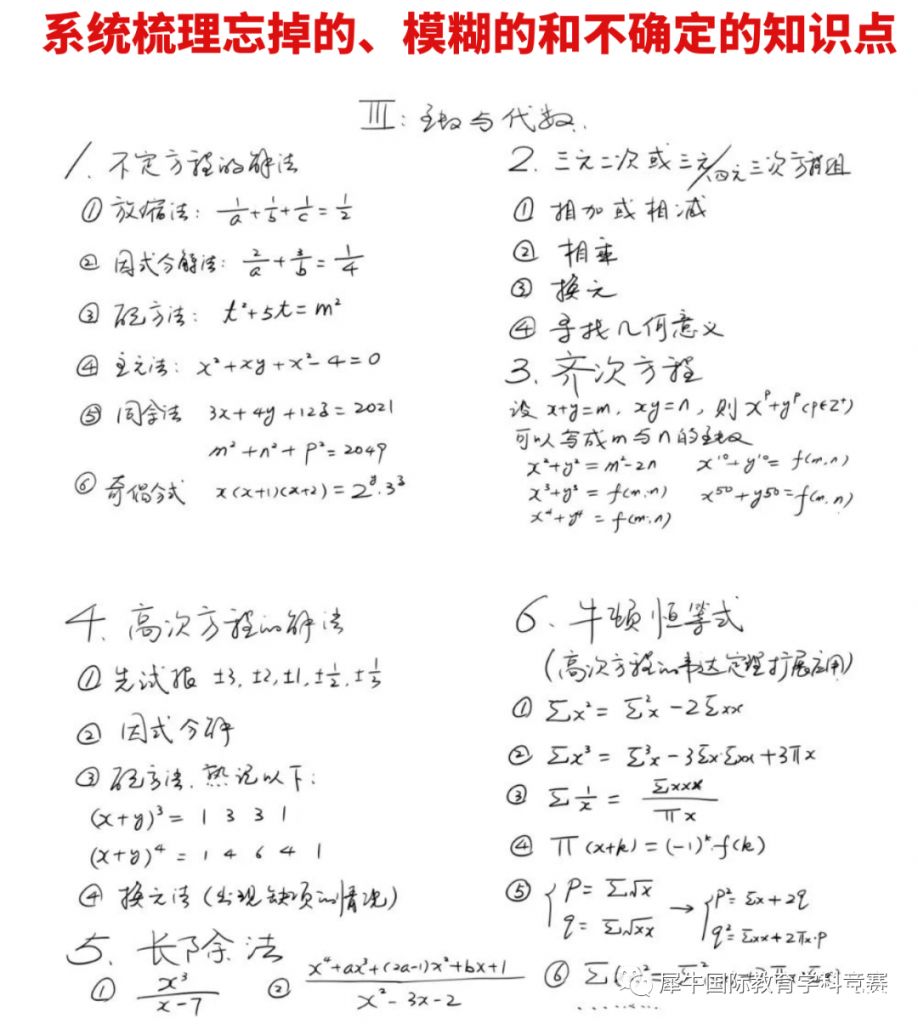 系统梳理忘掉的、模糊的和不确定的知识点
III: 函数与代数.
1. 不定方程的解法
① 放缩法: 1/a + 1/b + 1/c = 1/2
② 因式分解法: 2/a + 3/b = 1/4
③ 配方法: t²+5t=m²
④ 主元法: x²+xy+x²-4=0
⑤ 同余法 3x+4y+12z=2021
m²+n²+p²=2049
⑥ 奇偶分式 x(x+1)(x+2)=2⁸·3³
2. 三元二次或三元/四元三次方程组
① 相加或相减
② 相乘
③ 换元
④ 寻找几何意义
3. 齐次方程
设 x+y=m, xy=n, 则 x^p+y^p (p∈Z⁺)
可以写成m与n的函数
x²+y²=m²-2n x¹⁰+y¹⁰=f(m,n)
x³+y³=f(m,n) x⁵⁰+y⁵⁰=f(m,n)
x⁴+y⁴=f(m,n)
4. 高次方程的解法
① 先试根 ±3, ±2, ±1, ±1/2, ±1/3
② 因式分解
③ 配方法. 熟记以下:
(x+y)³ = 1 3 3 1
(x+y)⁴ = 1 4 6 4 1
④ 换元法 (出现缺项的情况)
5. 长除法
① x³/(x-7) ② (x⁴+ax³+(2a-1)x²+bx+1)/(x²-3x-2)
6. 牛顿恒等式
(高次方程的韦达定理扩展应用)
① Σx² = Σ²x - 2Σxx
② Σx³ = Σ³x - 3Σx·Σxx + 3πx
③ Σ1/x = Σxxx/πx
④ π(x+k) = (-1)^k·f(k)
⑤ { p=Σ√x q=Σ√xx → { p²=Σx+2q q²=Σxx+2πx·p
⑥ Σ
犀牛国际教育学科竞赛